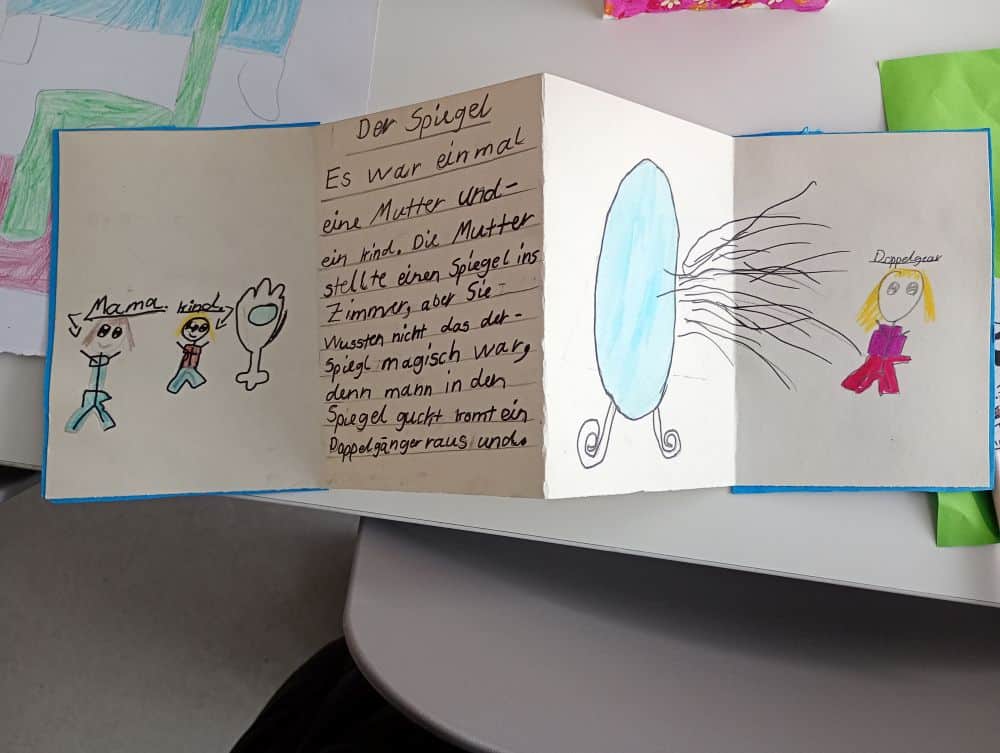 Mama kind
Der Spiegel
Es war einmal
eine Mutter und-
ein kind. Die Mutter
stellte einen Spiegel ins
Zimmer, aber Sie-
Wussten nicht das der-
Spiegl magisch war,
denn mann in den
Spiegel guckt komt ein
Doppelgänger raus und.
Doppelgear